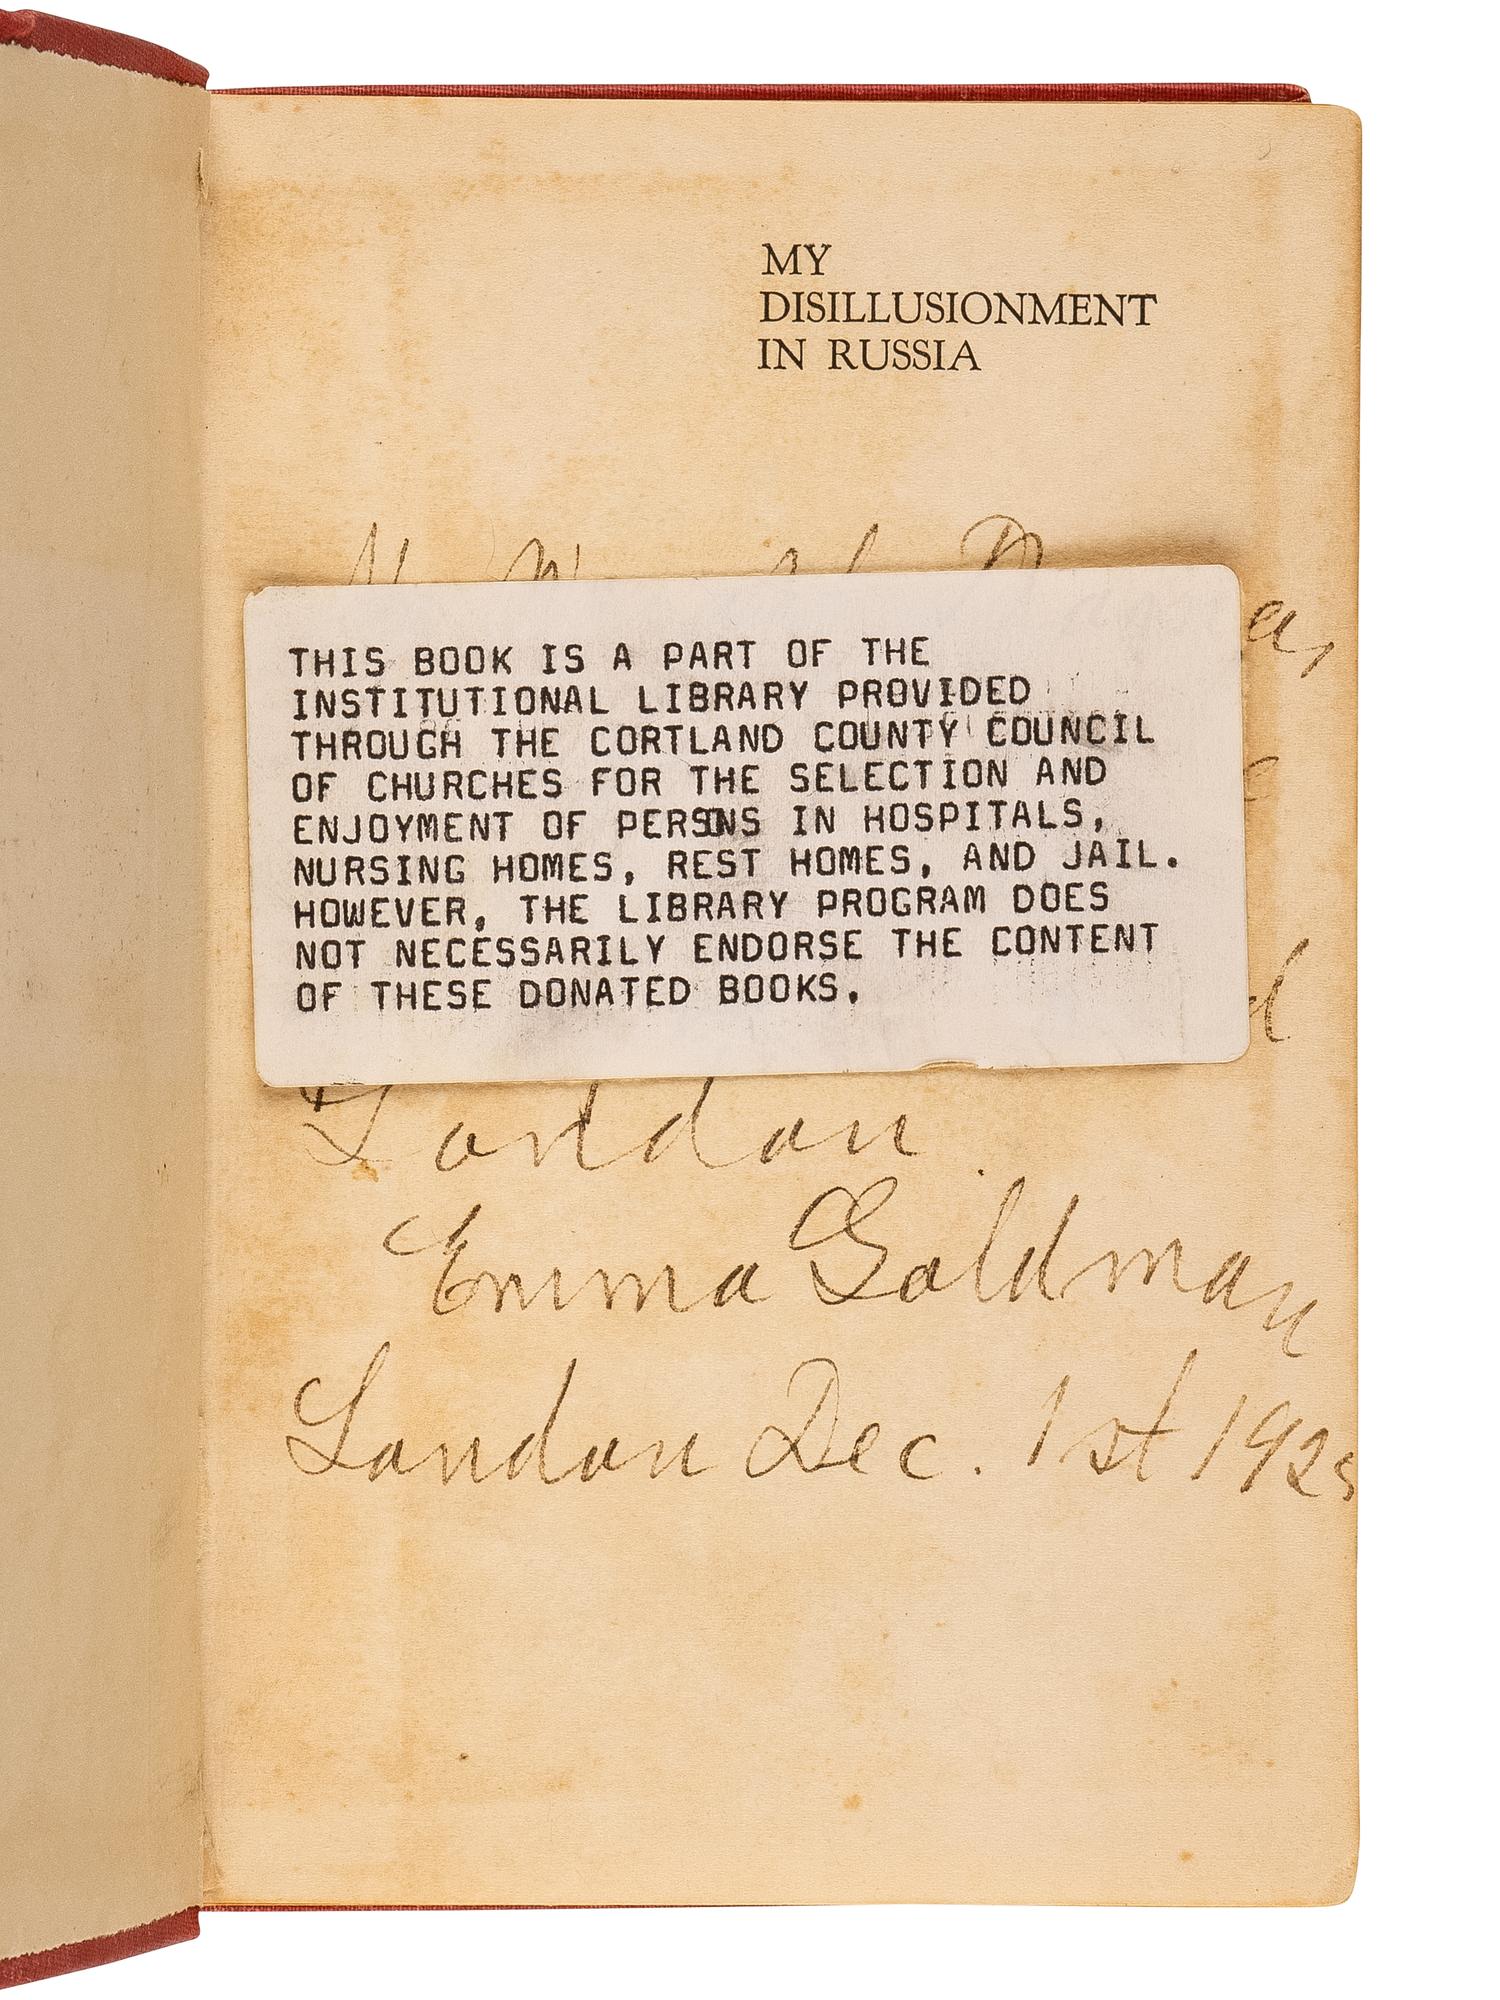 MY
DISILLUSIONMENT
IN RUSSIA
THIS BOOK IS A PART OF THE
INSTITUTIONAL LIBRARY PROVIDED
THROUGH THE CORTLAND COUNTY COUNCIL
OF CHURCHES FOR THE SELECTION AND
ENJOYMENT OF PERSONS IN HOSPITALS,
NURSING HOMES, REST HOMES, AND JAIL.
HOWEVER, THE LIBRARY PROGRAM DOES
NOT NECESSARILY ENDORSE THE CONTENT
OF THESE DONATED BOOKS.
London
Emma Goldman
London Dec. 1st 1925